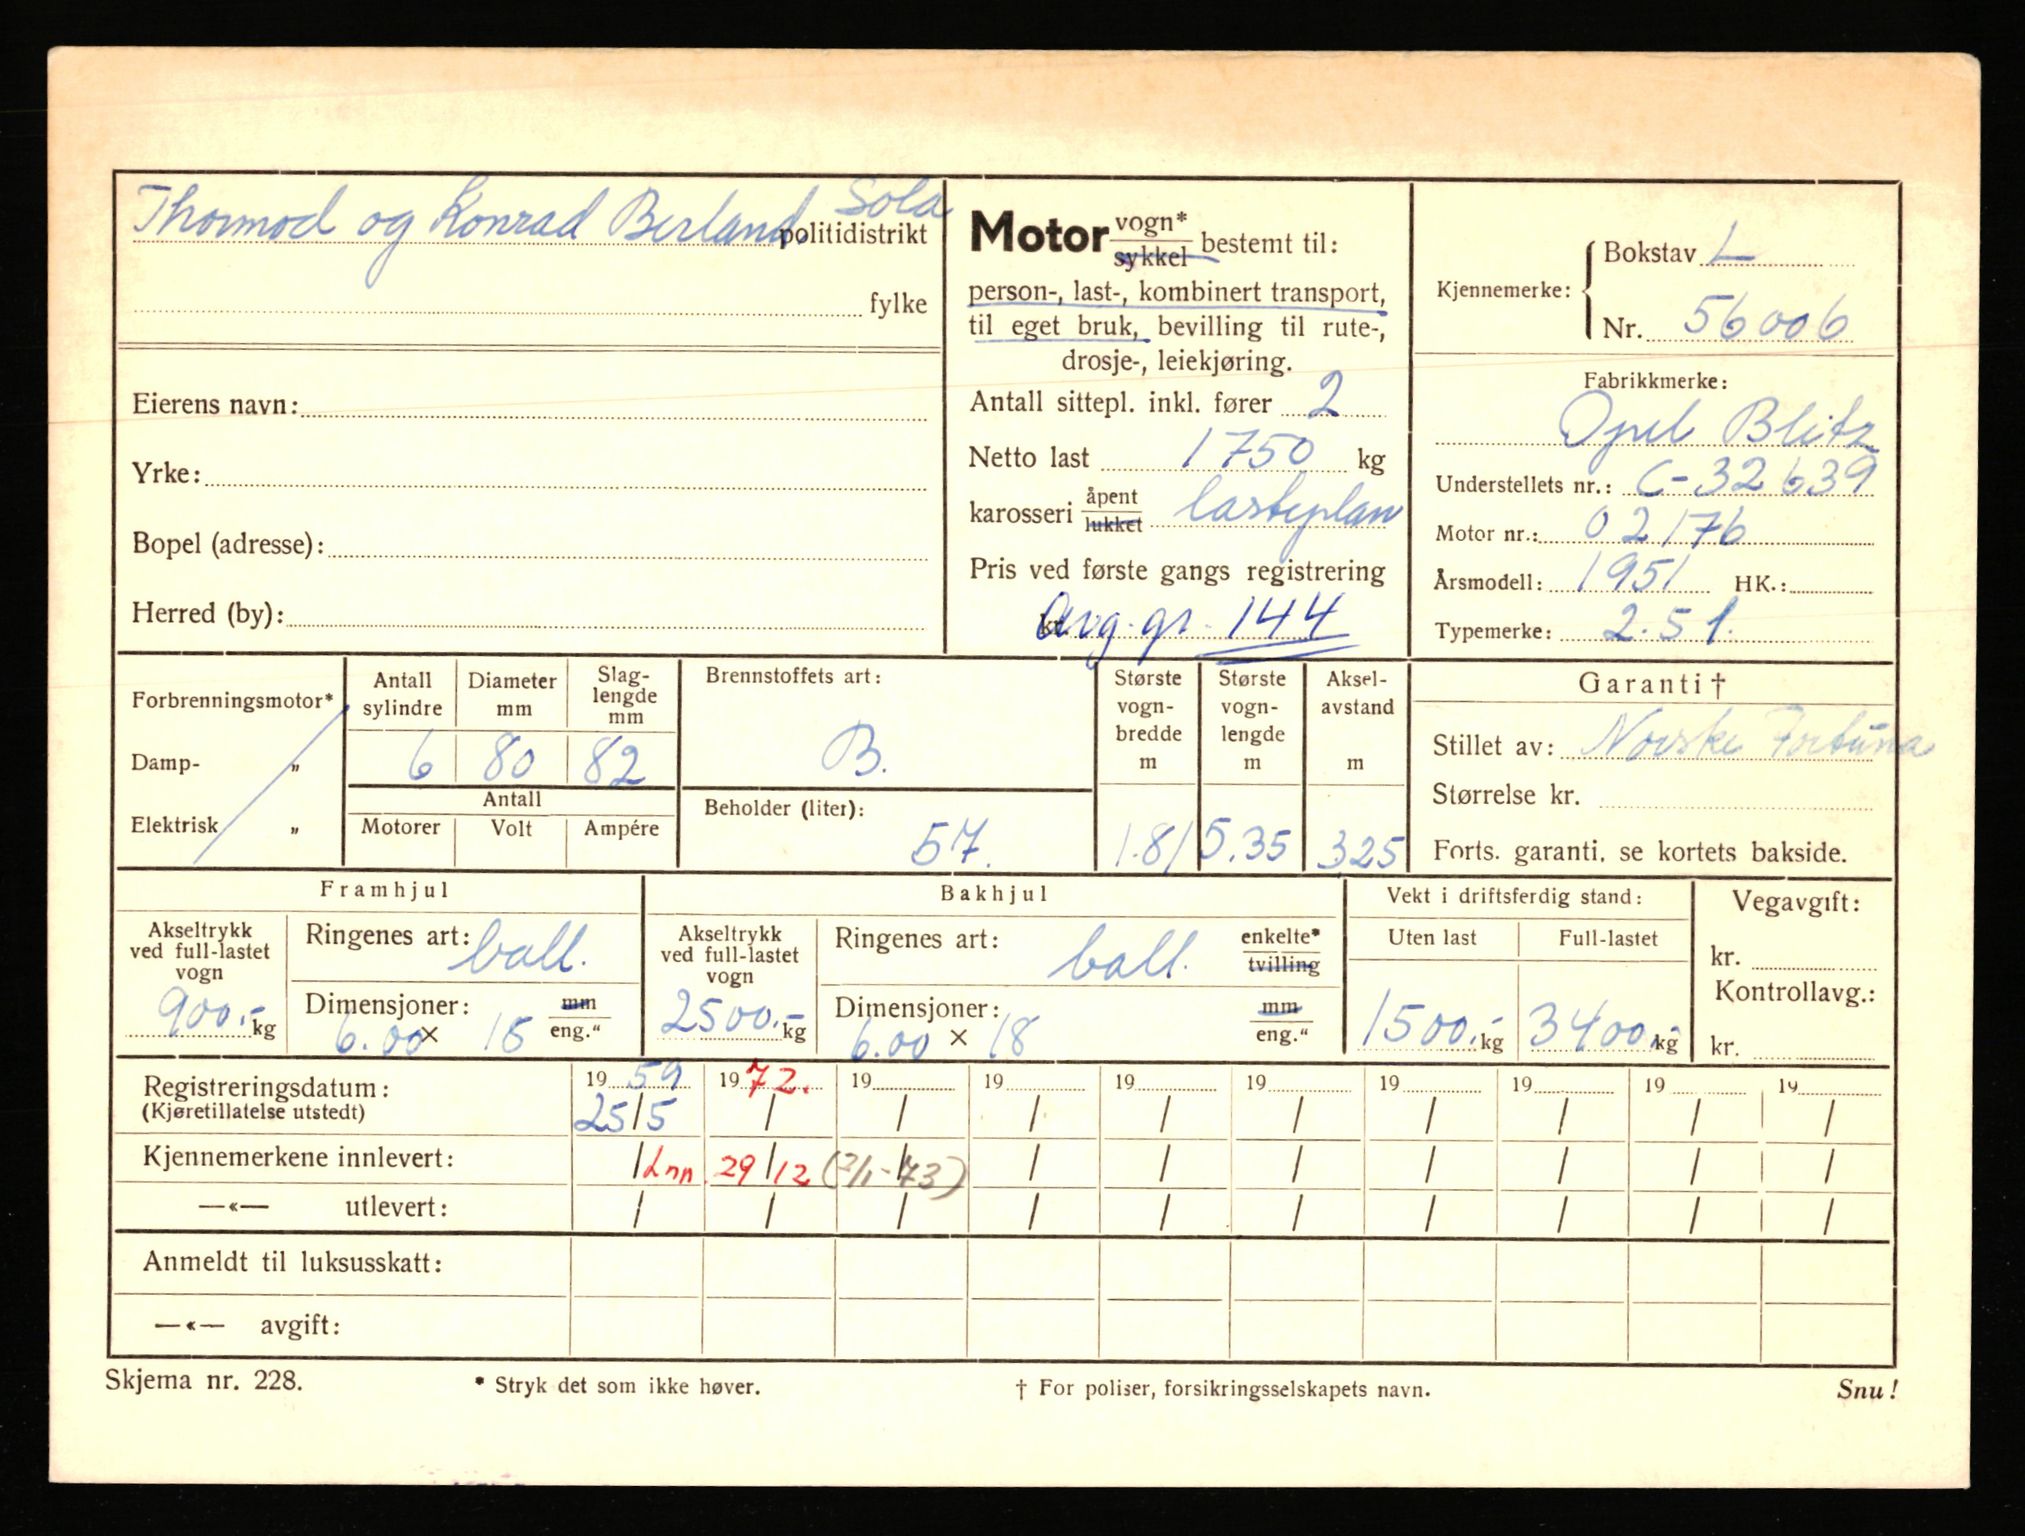 Thormod og Konrad Berland, Sola
politidistrikt
fylke
Eierens navn:
Yrke:
Bopel (adresse):
Herred (by):
Motor vogn* sykkel bestemt til:
person-, last-, kombinert transport,
til eget bruk, bevilling til rute-,
drosje-, leiekjøring.
Antall sittepl. inkl. fører 2
Netto last 1750 kg
karosseri åpent lukket lasteplan
Pris ved første gangs registrering
kr. Avg. gr. 144
Kjennemerke:
Bokstav L
Nr. 56006
Fabrikkmerke:
Opel Blitz
Understellets nr.: C-32639
Motor nr.: 02176
Årsmodell: 1951 HK.:
Typemerke: 2.51.
Forbrenningsmotor*
Damp- „
Elektrisk „
Antall sylindre
Diameter mm
Slag-lengde mm
6 80 82
Antall
Motorer Volt Ampére
Brennstoffets art:
B.
Beholder (liter):
57.
Største vogn-bredde m
1.81
Største vogn-lengde m
5.35
Aksel-avstand m
325
Garanti †
Stillet av: Norske Fortuna
Størrelse kr.
Forts. garanti, se kortets bakside.
Framhjul
Akseltrykk ved full-lastet vogn
900.- kg
Ringenes art: ball.
Dimensjoner: mm eng.“
6.00 × 18
Bakhjul
Akseltrykk ved full-lastet vogn
2500.- kg
Ringenes art: ball. enkelte* tvilling
Dimensjoner: mm eng.“
6.00 × 18
Vekt i driftsferdig stand:
Uten last Full-lastet
1500.- kg 3400.- kg
Vegavgift:
kr.
Kontrollavg.:
kr.
Registreringsdatum: 19 59 19 72. 19 19 19 19 19 19 19 19
(Kjøretillatelse utstedt) 25/5 / / / / / / / / /
Kjennemerkene innlevert: / Lnn. 29/12 (2/1-73) / / / / / / /
—«— utlevert: / / / / / / / / / /
Anmeldt til luksusskatt:
—«— avgift:
Skjema nr. 228.
* Stryk det som ikke høver.
† For poliser, forsikringsselskapets navn.
Snu!